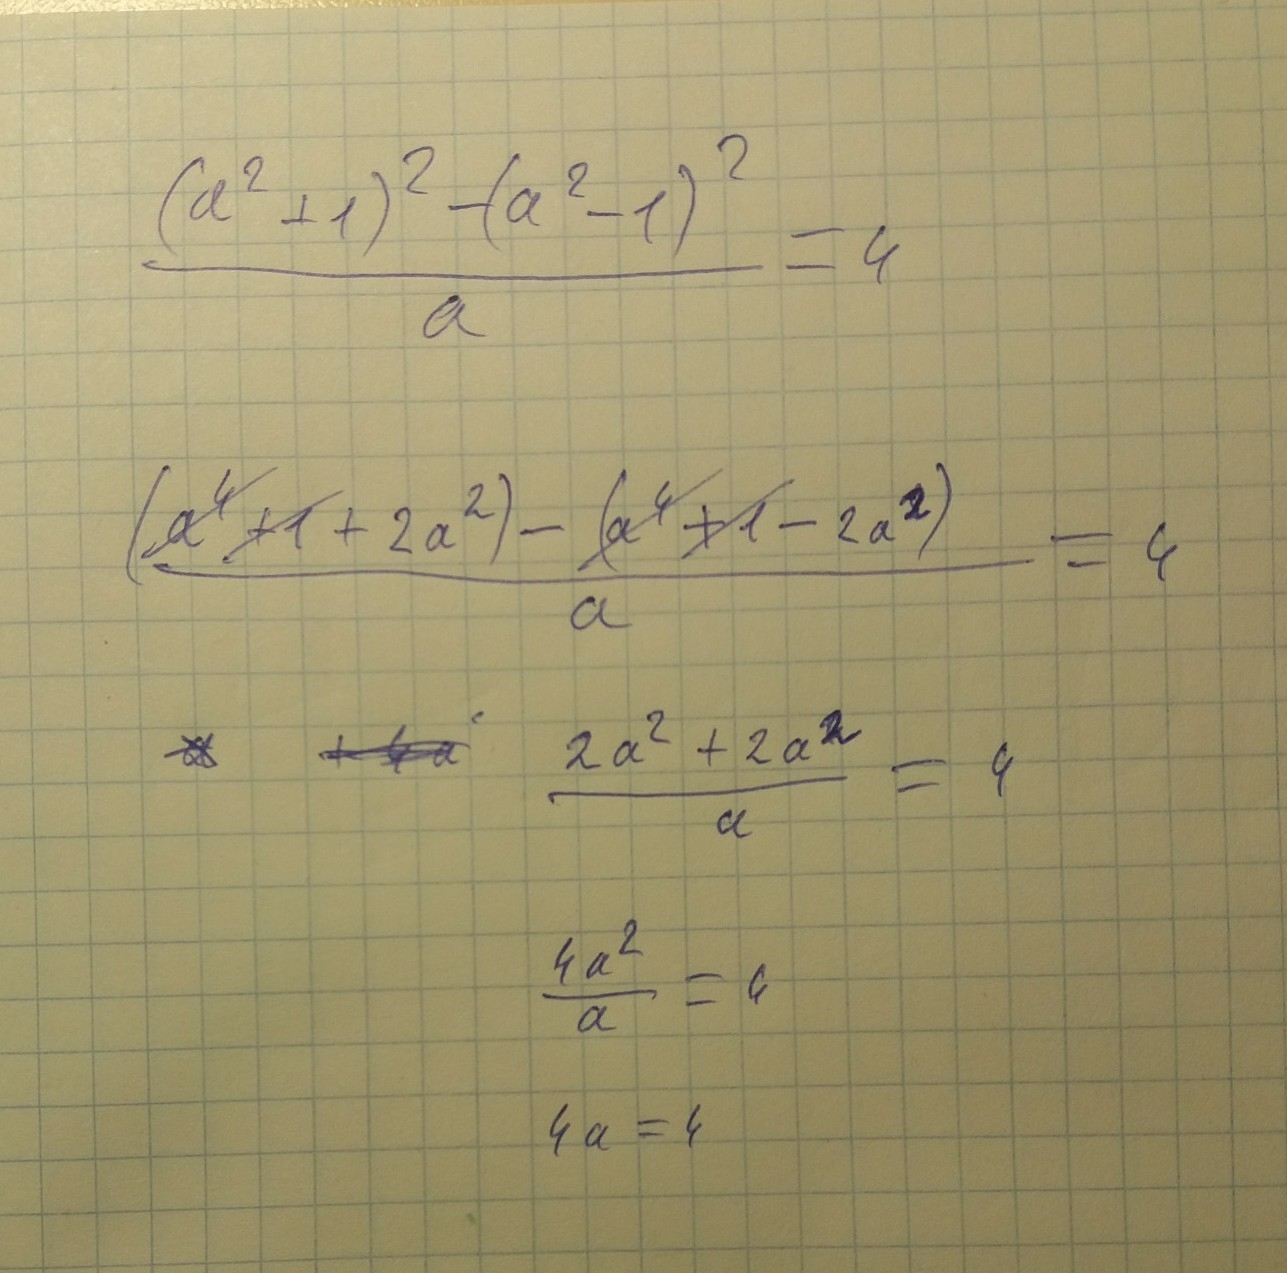 ((a²+1)² -(a²-1)²)/a = 4
((a⁴+1+2a²) - (a⁴+1-2a²))/a = 4
(2a²+2a²)/a = 4
4a²/a = 4
4a=4